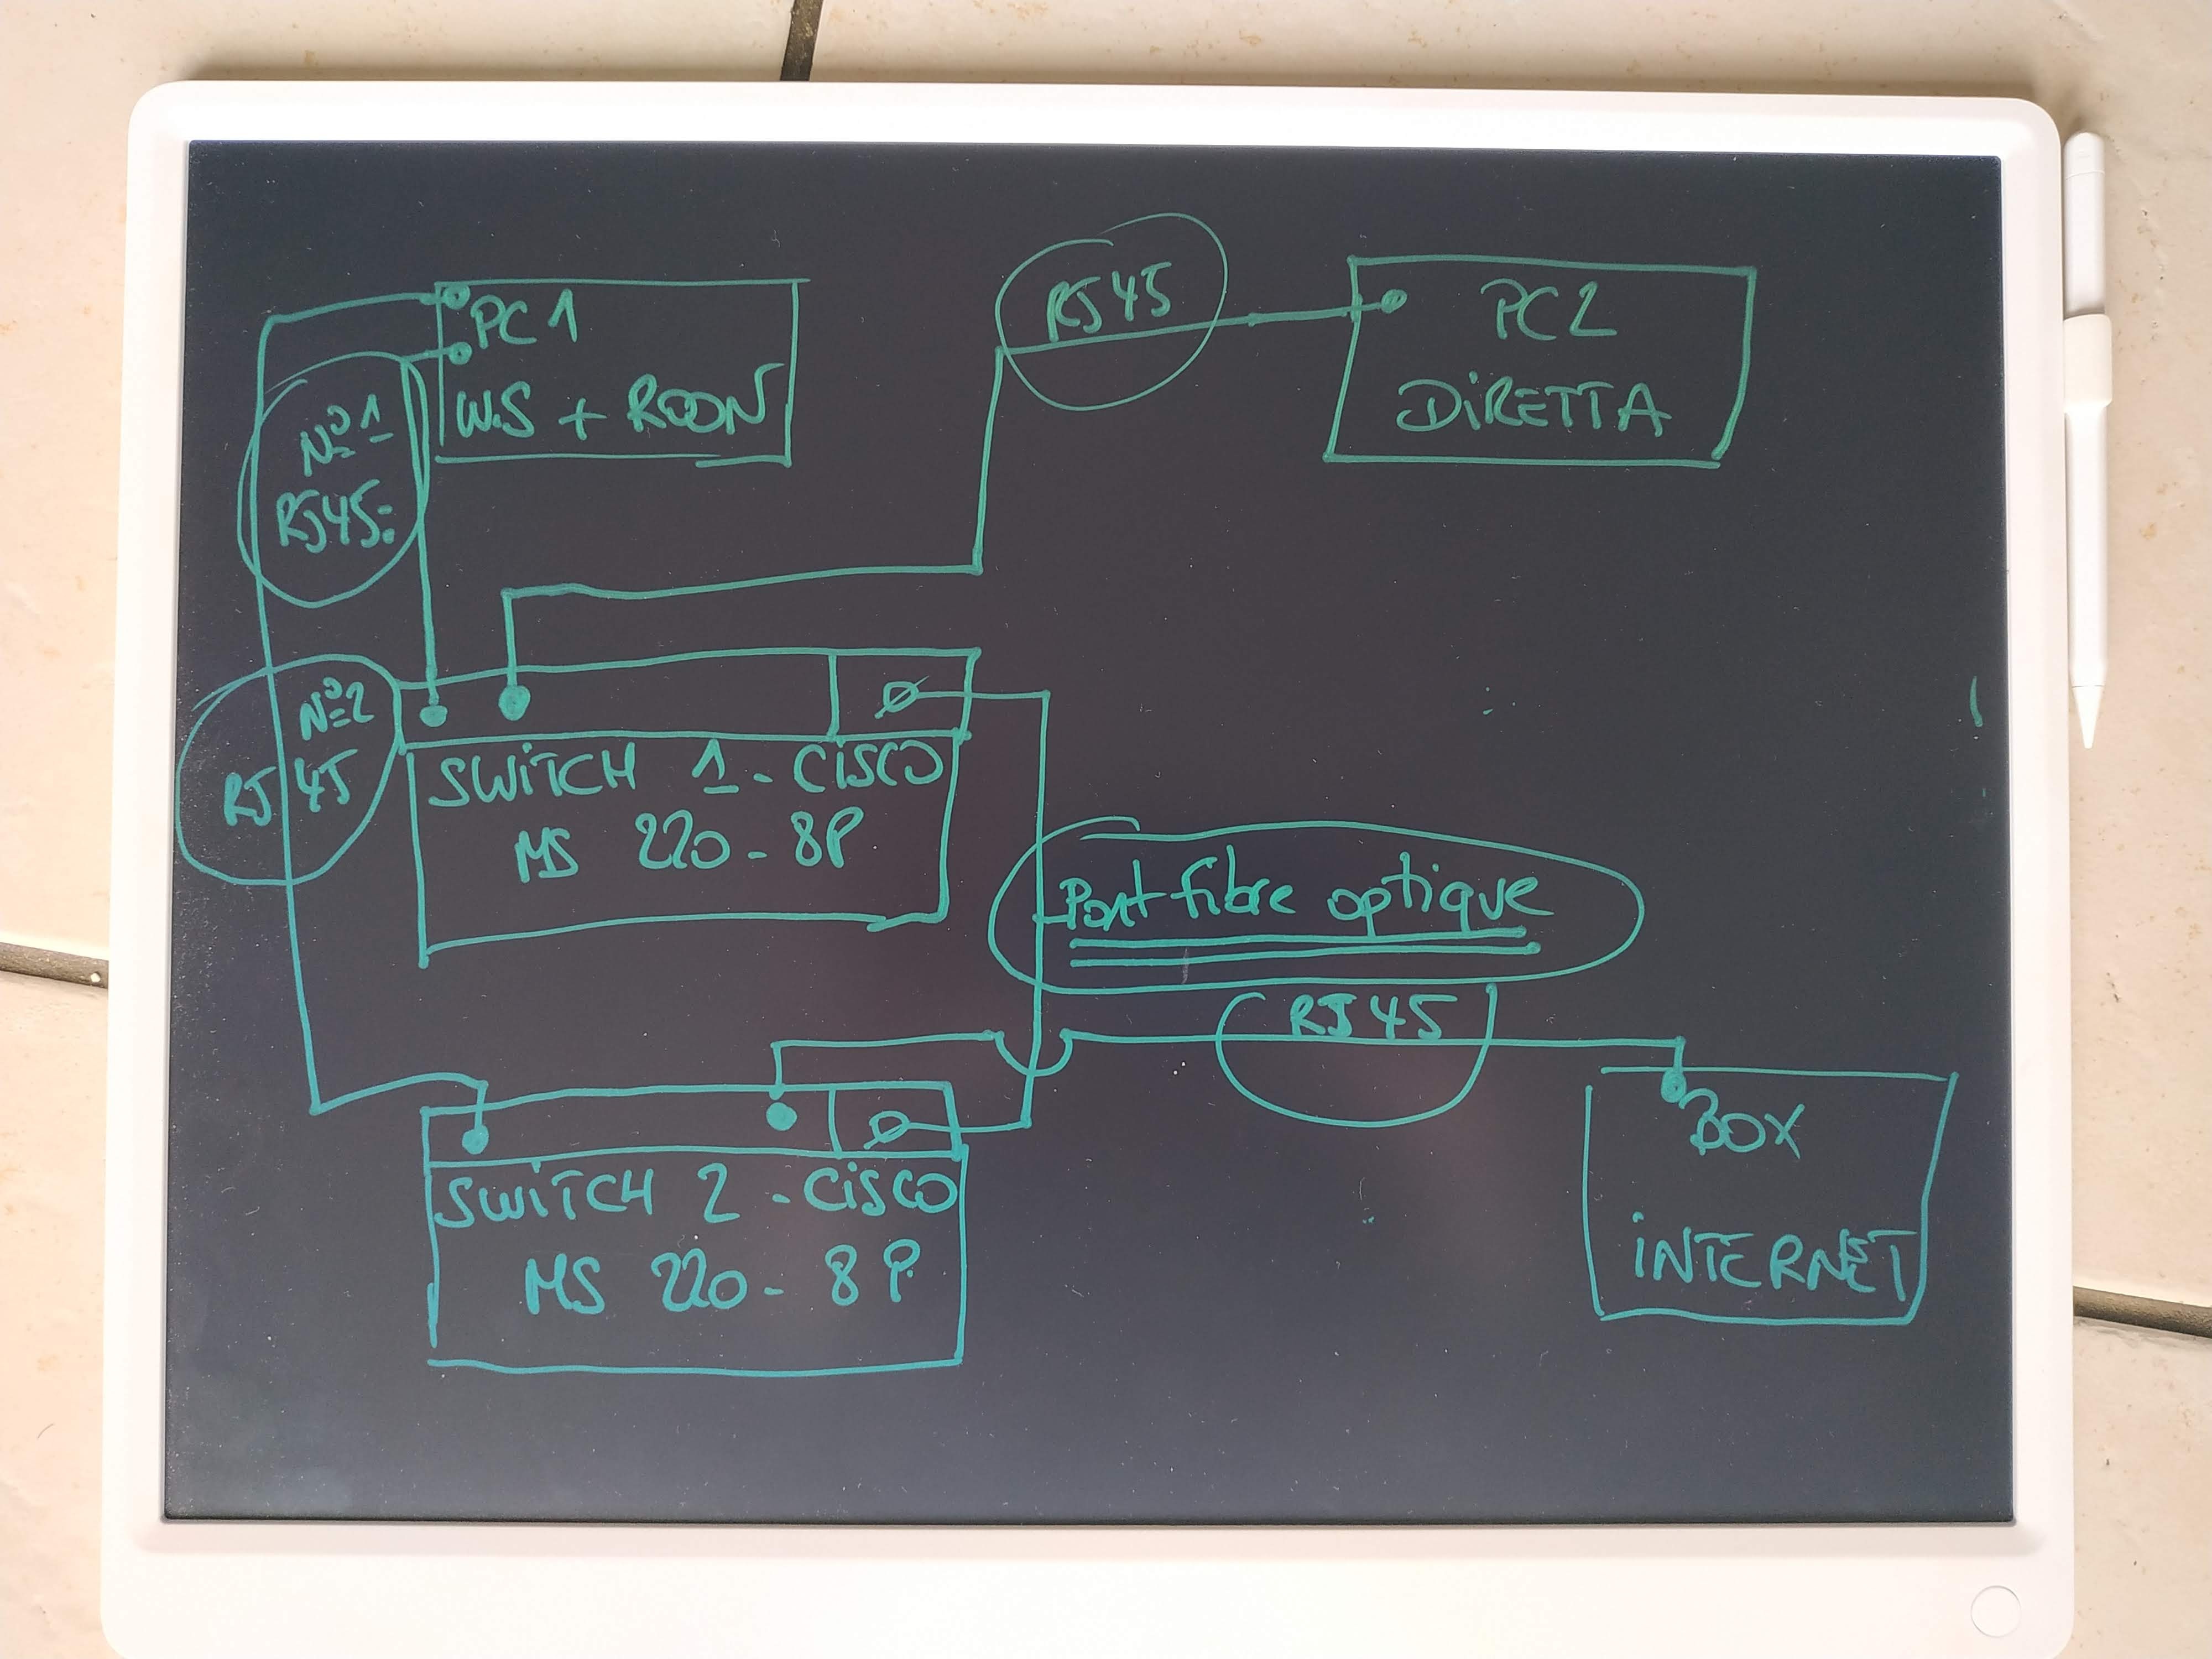 PC 1
W.S + ROON
RJ45
PC2
DIRETTA
Nº1
RJ45:
Nº2
RJ 45
SWITCH 1 - CISCO
MS 220 - 8P
Pont fibre optique
RJ 45
SWITCH 2 - CISCO
MS 220 - 8P.
BOX
INTERNET